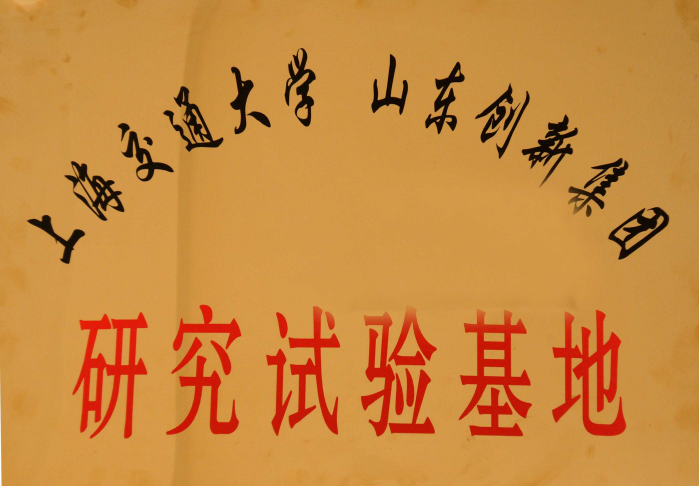 上海交通大学 山东创新集团
研究试验基地